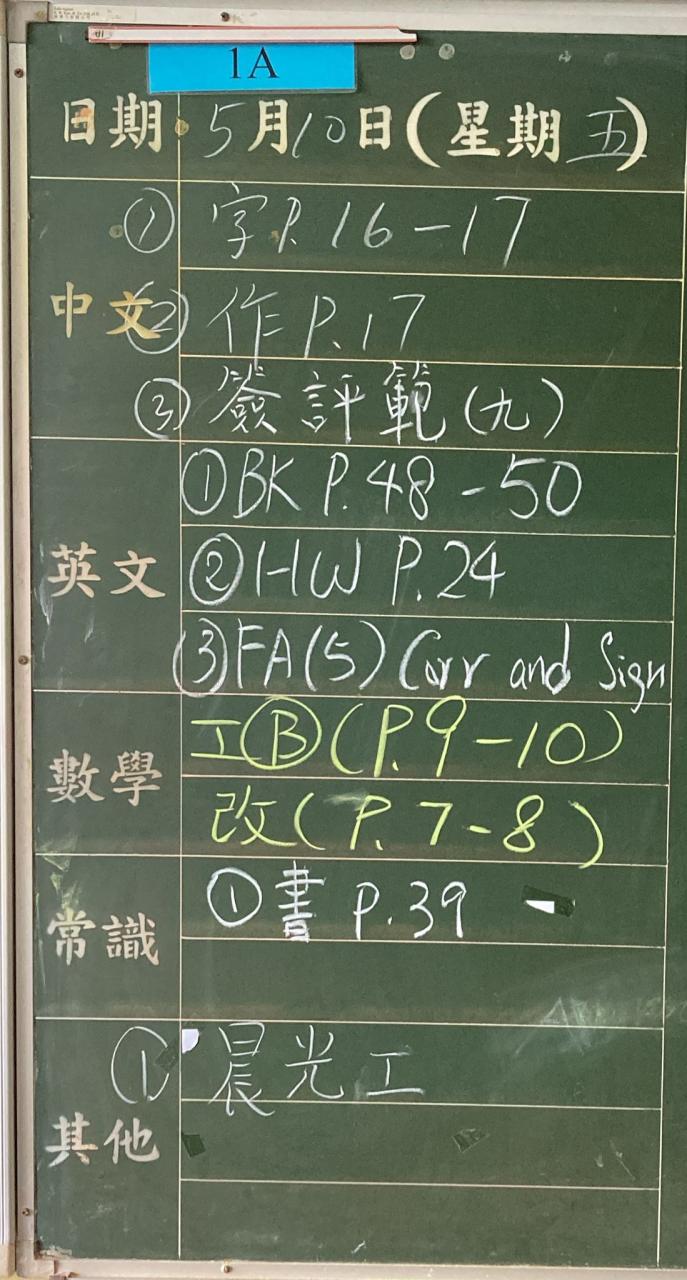 1A
日期 5月10日(星期五)
中文
① 字P.16-17
② 作P.17
③ 簽評範(九)
英文
①BK P.48-50
②HW P.24
③FA(5) Corr and Sign
數學
工Ⓑ(P.9-10)
改(P.7-8)
常識
①書 P.39
其他
① 晨光工